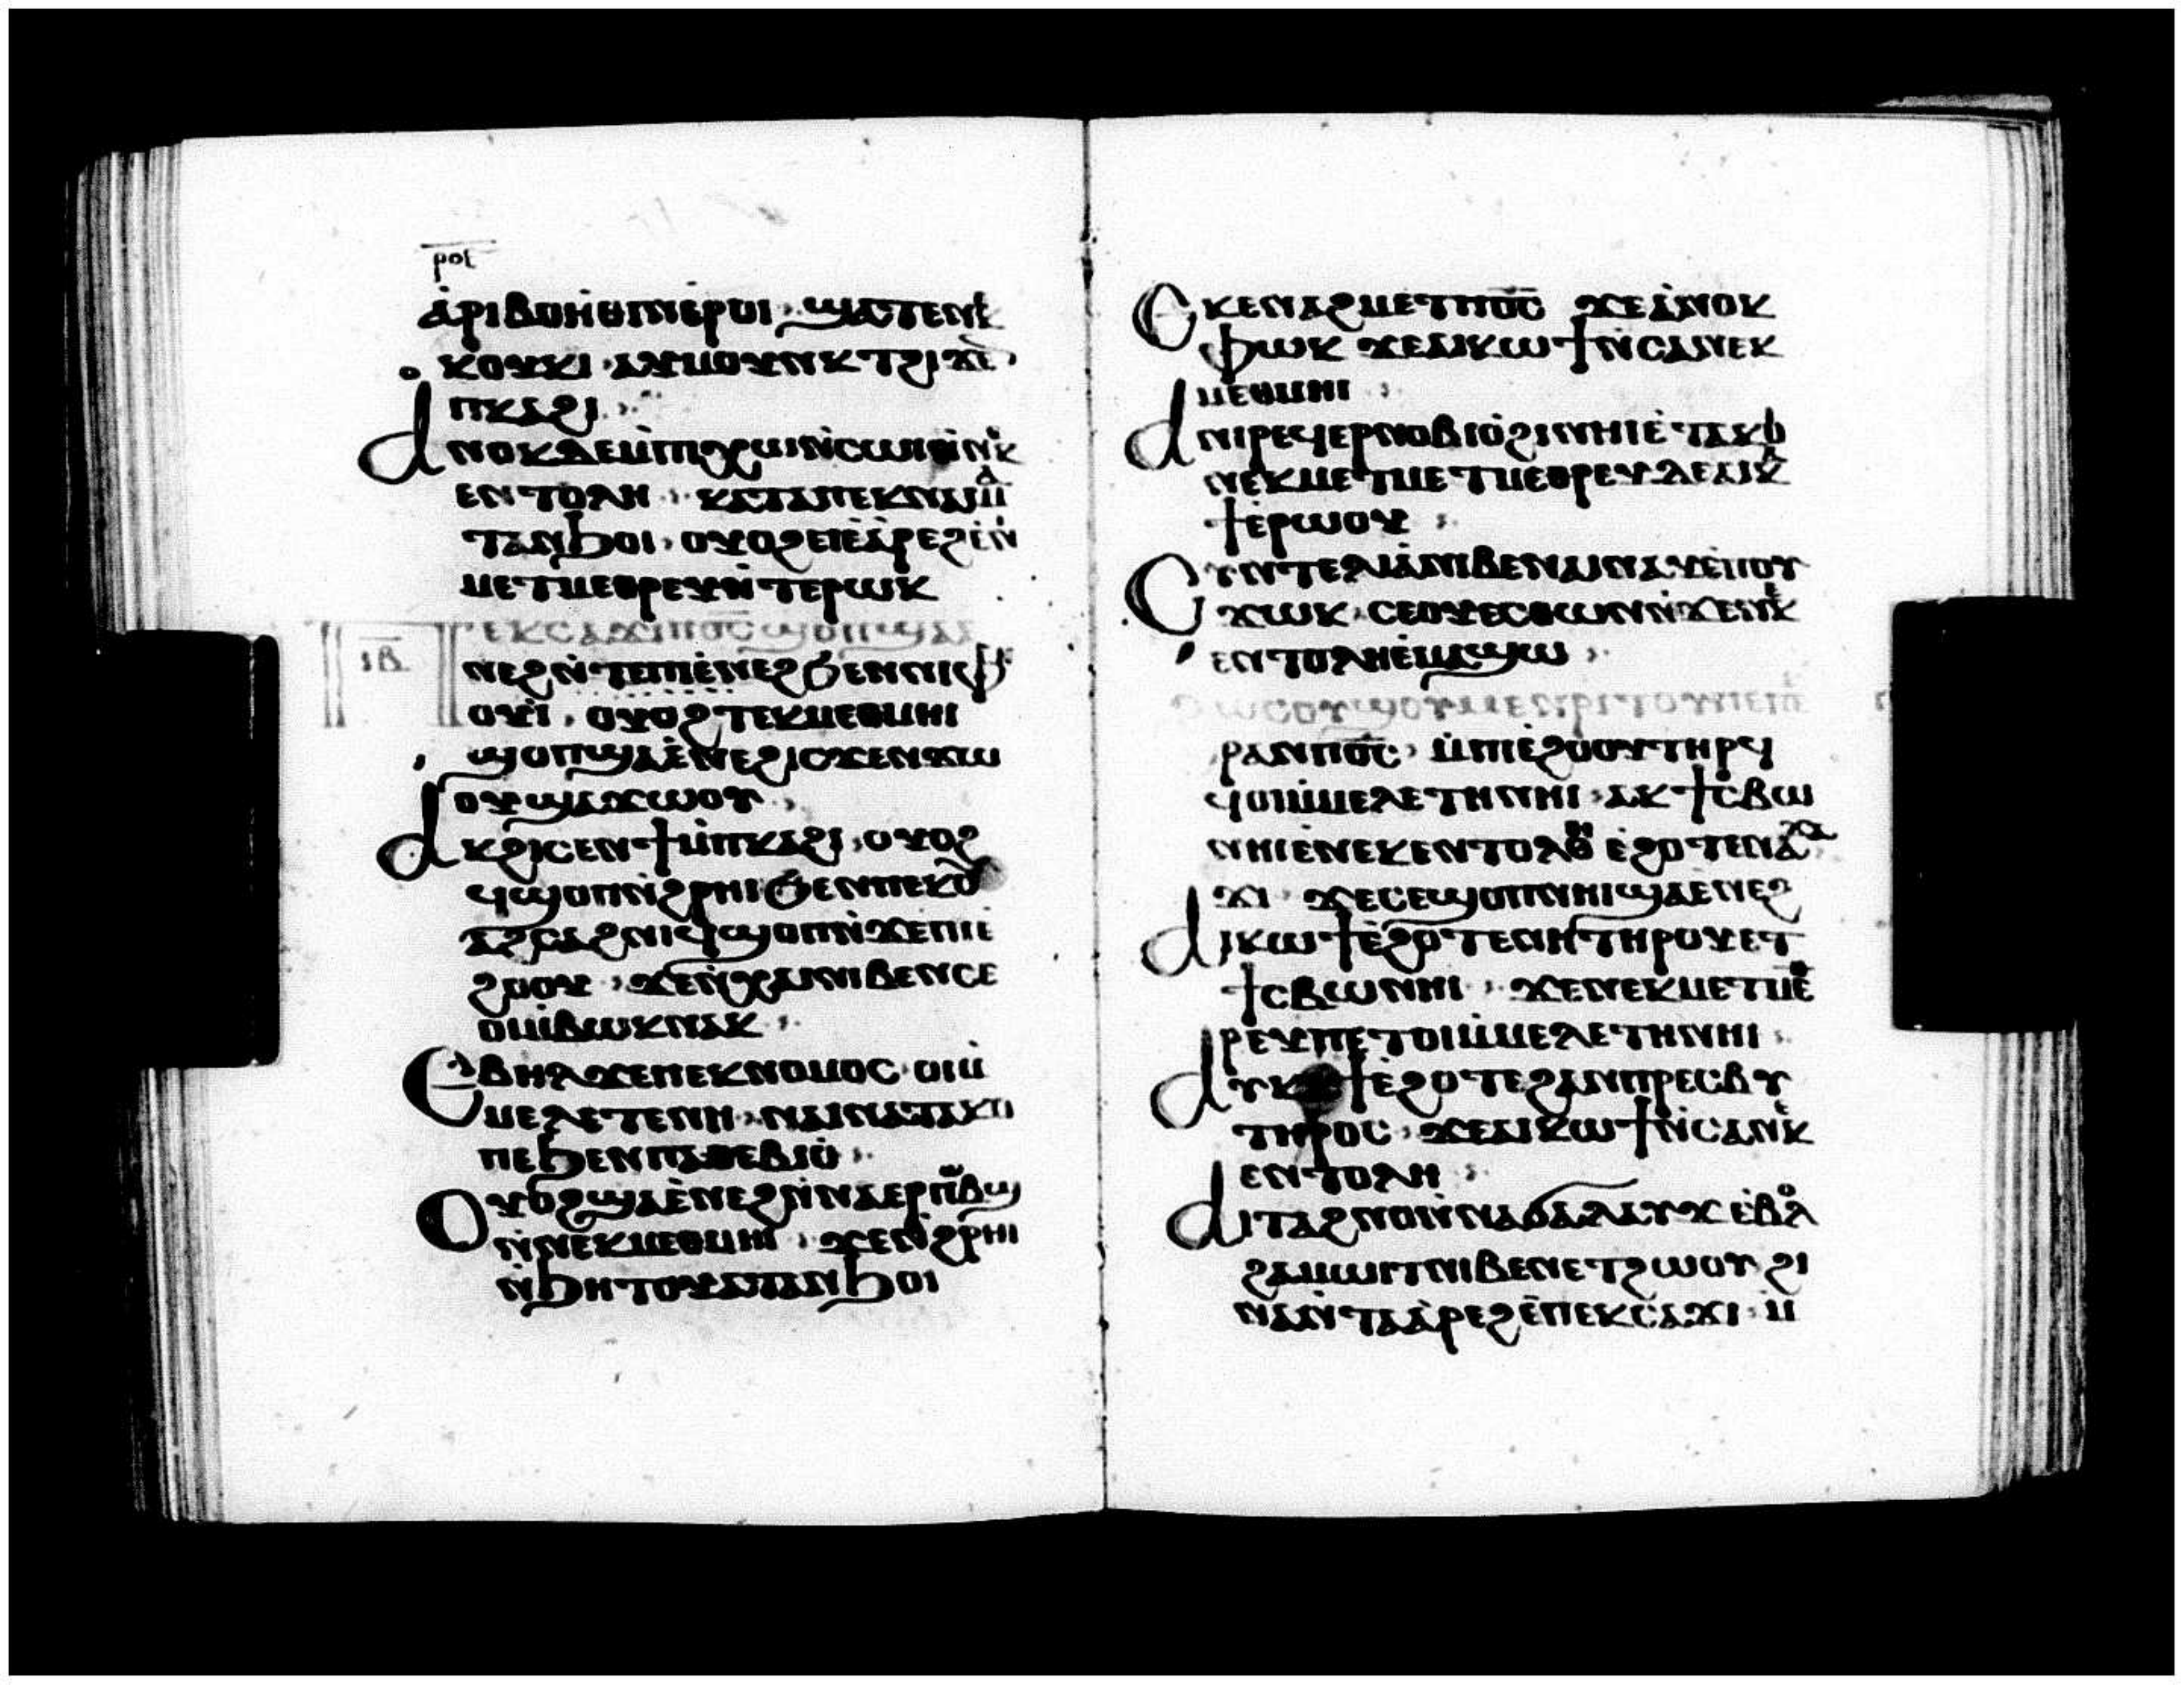 ⲣⲟⲋ
ⲁ̇ⲣⲓⲃⲟⲏ̇ⲑⲓⲛⲉ̇ⲣⲟⲓ ϣⲁⲧⲉⲛⲕⲉ
ⲕⲟⲩϫⲓ ⲁⲩⲙⲟⲩⲛⲕ ⲧϩⲓϫⲉ̀
ⲡⲕⲁϩⲓ
ⲁⲛⲟⲕⲇⲉⲙ̇ⲡⲓⲭⲱⲛ̇ⲥⲱⲓⲛ̇ⲛⲉⲕ
ⲉⲛⲧⲟⲗⲏ ⲕⲁⲧⲁⲡⲉⲕⲛⲁⲓⲙⲁ
ⲧⲁⲛϧⲟⲓ ⲟⲩⲟϩⲉⲓⲉ̀ⲁ̇ⲣⲉϩⲉ̇ⲛ
ⲙⲉⲧⲙⲉⲑⲣⲉⲩⲛ̇ⲧⲉⲣⲱⲕ
ⲓⲃ
ⲡⲉⲕⲥⲁϫⲓⲡⲟ̅ⲥ̅ϣⲟⲡϣⲁⲉ
ⲛⲉϩⲛ̇ⲧⲉⲡⲓⲉ̇ⲛⲉϩϧⲉⲛⲛⲓⲫⲏ
ⲟⲩⲓ̇ ⲟⲩⲟϩⲧⲉⲕⲙⲉⲑⲙⲏⲓ
ϣⲟⲡϣⲁⲉ̇ⲛⲉϩⲓⲥϫⲉⲛϫⲱ
ⲟⲩϣⲁϫⲱⲟⲩ
ⲁⲕϩⲓⲥⲉⲛϯⲙ̇ⲡⲕⲁϩⲓ ⲟⲩⲟϩ
ϥϣⲟⲡⲛ̇ϩⲣⲏⲓϧⲉⲛⲡⲉⲕⲟ̀
ⲁϩⲥⲁϩⲛⲓϥϣⲟⲡⲛ̇ϫⲉⲡⲓⲉ
ϩⲟⲟⲩ ϫⲉⲛ̇ⲭⲁⲓⲛⲓⲃⲉⲛⲥⲉ
ⲟⲓⲙ̇ⲃⲱⲕⲛⲁⲕ
ⲉⲃⲏⲗϫⲉⲡⲉⲕⲛⲟⲙⲟⲥ ⲟⲓⲙ̇
ⲙⲉⲗⲉⲧⲉⲛⲏ ⲛⲁⲓⲛⲁⲧⲁⲕⲟ
ⲡⲉϧⲉⲛⲡⲁⲑⲉⲃⲓⲟ̇
ⲟⲩⲟϩϣⲁⲉ̇ⲛⲉϩⲛ̇ⲛⲁⲉⲣⲡⲱⲃϣ
ⲛ̇ⲛⲉⲕⲙⲉⲑⲙⲏⲓ ϫⲉⲛ̇ϩⲣⲏⲓ
ⲛ̇ϧⲏⲧⲟⲩⲁⲕⲧⲁⲛϧⲟⲓ
ⲉⲕⲉⲛⲁϩⲙⲉⲧⲡⲟ̅ⲥ̅ ϫⲉⲁ̇ⲛⲟⲕ
ⲫⲱⲕ ϫⲉⲁⲓⲕⲱϯⲛ̇ⲥⲁⲛⲉⲕ
ⲙⲉⲑⲙⲏⲓ
ⲁⲛⲓⲣⲉϥⲉⲣⲛⲟⲃⲓⲟ̇ϩⲓⲛⲏⲓⲉ̇ⲧⲁⲕⲟ
ⲛⲉⲕⲙⲉⲧⲙⲉⲧⲙⲉⲑⲣⲉⲩⲇⲉⲁⲓⲕⲁ
ϯⲉ̇ⲣⲱⲟⲩ
ⲥⲩⲛⲧⲉⲗⲓⲁ̇ⲛⲓⲃⲉⲛⲁⲓⲛⲁⲩⲉ̇ⲡⲟⲩ
ϫⲱⲕ ⲥⲉⲟⲩⲉⲥⲑⲱⲛⲛ̇ϫⲉⲛⲉⲕ
ⲉⲛⲧⲟⲗⲏⲉ̇ⲙⲁϣⲱ
ⲣⲁⲛⲡⲟ̅ⲥ̅ ⲙ̇ⲡⲓⲉ̇ϩⲟⲟⲩⲧⲏⲣϥ
ϥⲟⲓⲙ̇ⲙⲉⲗⲉⲧⲏⲛⲏⲓ ⲁⲕϯⲥⲃⲱ
ⲛⲏⲓⲉ̇ⲛⲉⲕⲉⲛⲧⲟⲗⲏ ⲉ̇ϩⲟⲧⲉⲛⲁϫⲁ
ϫⲓ ϫⲉⲥⲉϣⲟⲡⲛⲏⲓϣⲁⲉ̇ⲛⲉϩ
ⲁⲓⲕⲱϯⲉ̇ϩⲟⲧⲉⲛⲏⲧⲏⲣⲟⲩⲉⲧ
ϯⲥⲃⲱⲛⲏⲓ ϫⲉⲛⲉⲕⲙⲉⲧⲙⲉⲑ
ⲣⲉⲩⲡⲉⲧⲟⲓⲙ̇ⲙⲉⲗⲉⲧⲏⲛⲏⲓ
ⲉ̇ϩⲟⲧⲉϩⲁⲛⲡⲣⲉⲥⲃⲩ
ⲧⲉⲣⲟⲥ ϫⲉⲁⲓⲕⲱϯⲛ̇ⲥⲁⲛⲉⲕ
ⲉⲛⲧⲟⲗⲏ
ⲁⲓⲧⲁϩⲛⲟⲛ̇ⲛⲁϭⲁⲗⲁⲩϫ ⲉ̇ⲃⲟⲗ
ϩⲁⲙⲱⲓⲧⲛⲓⲃⲉⲛⲉⲧϩⲱⲟⲩ ϩⲓ
ⲛⲁⲛ̇ⲧⲁⲁ̇ⲣⲉϩⲉ̇ⲡⲉⲕⲥⲁϫⲓ ⲙ